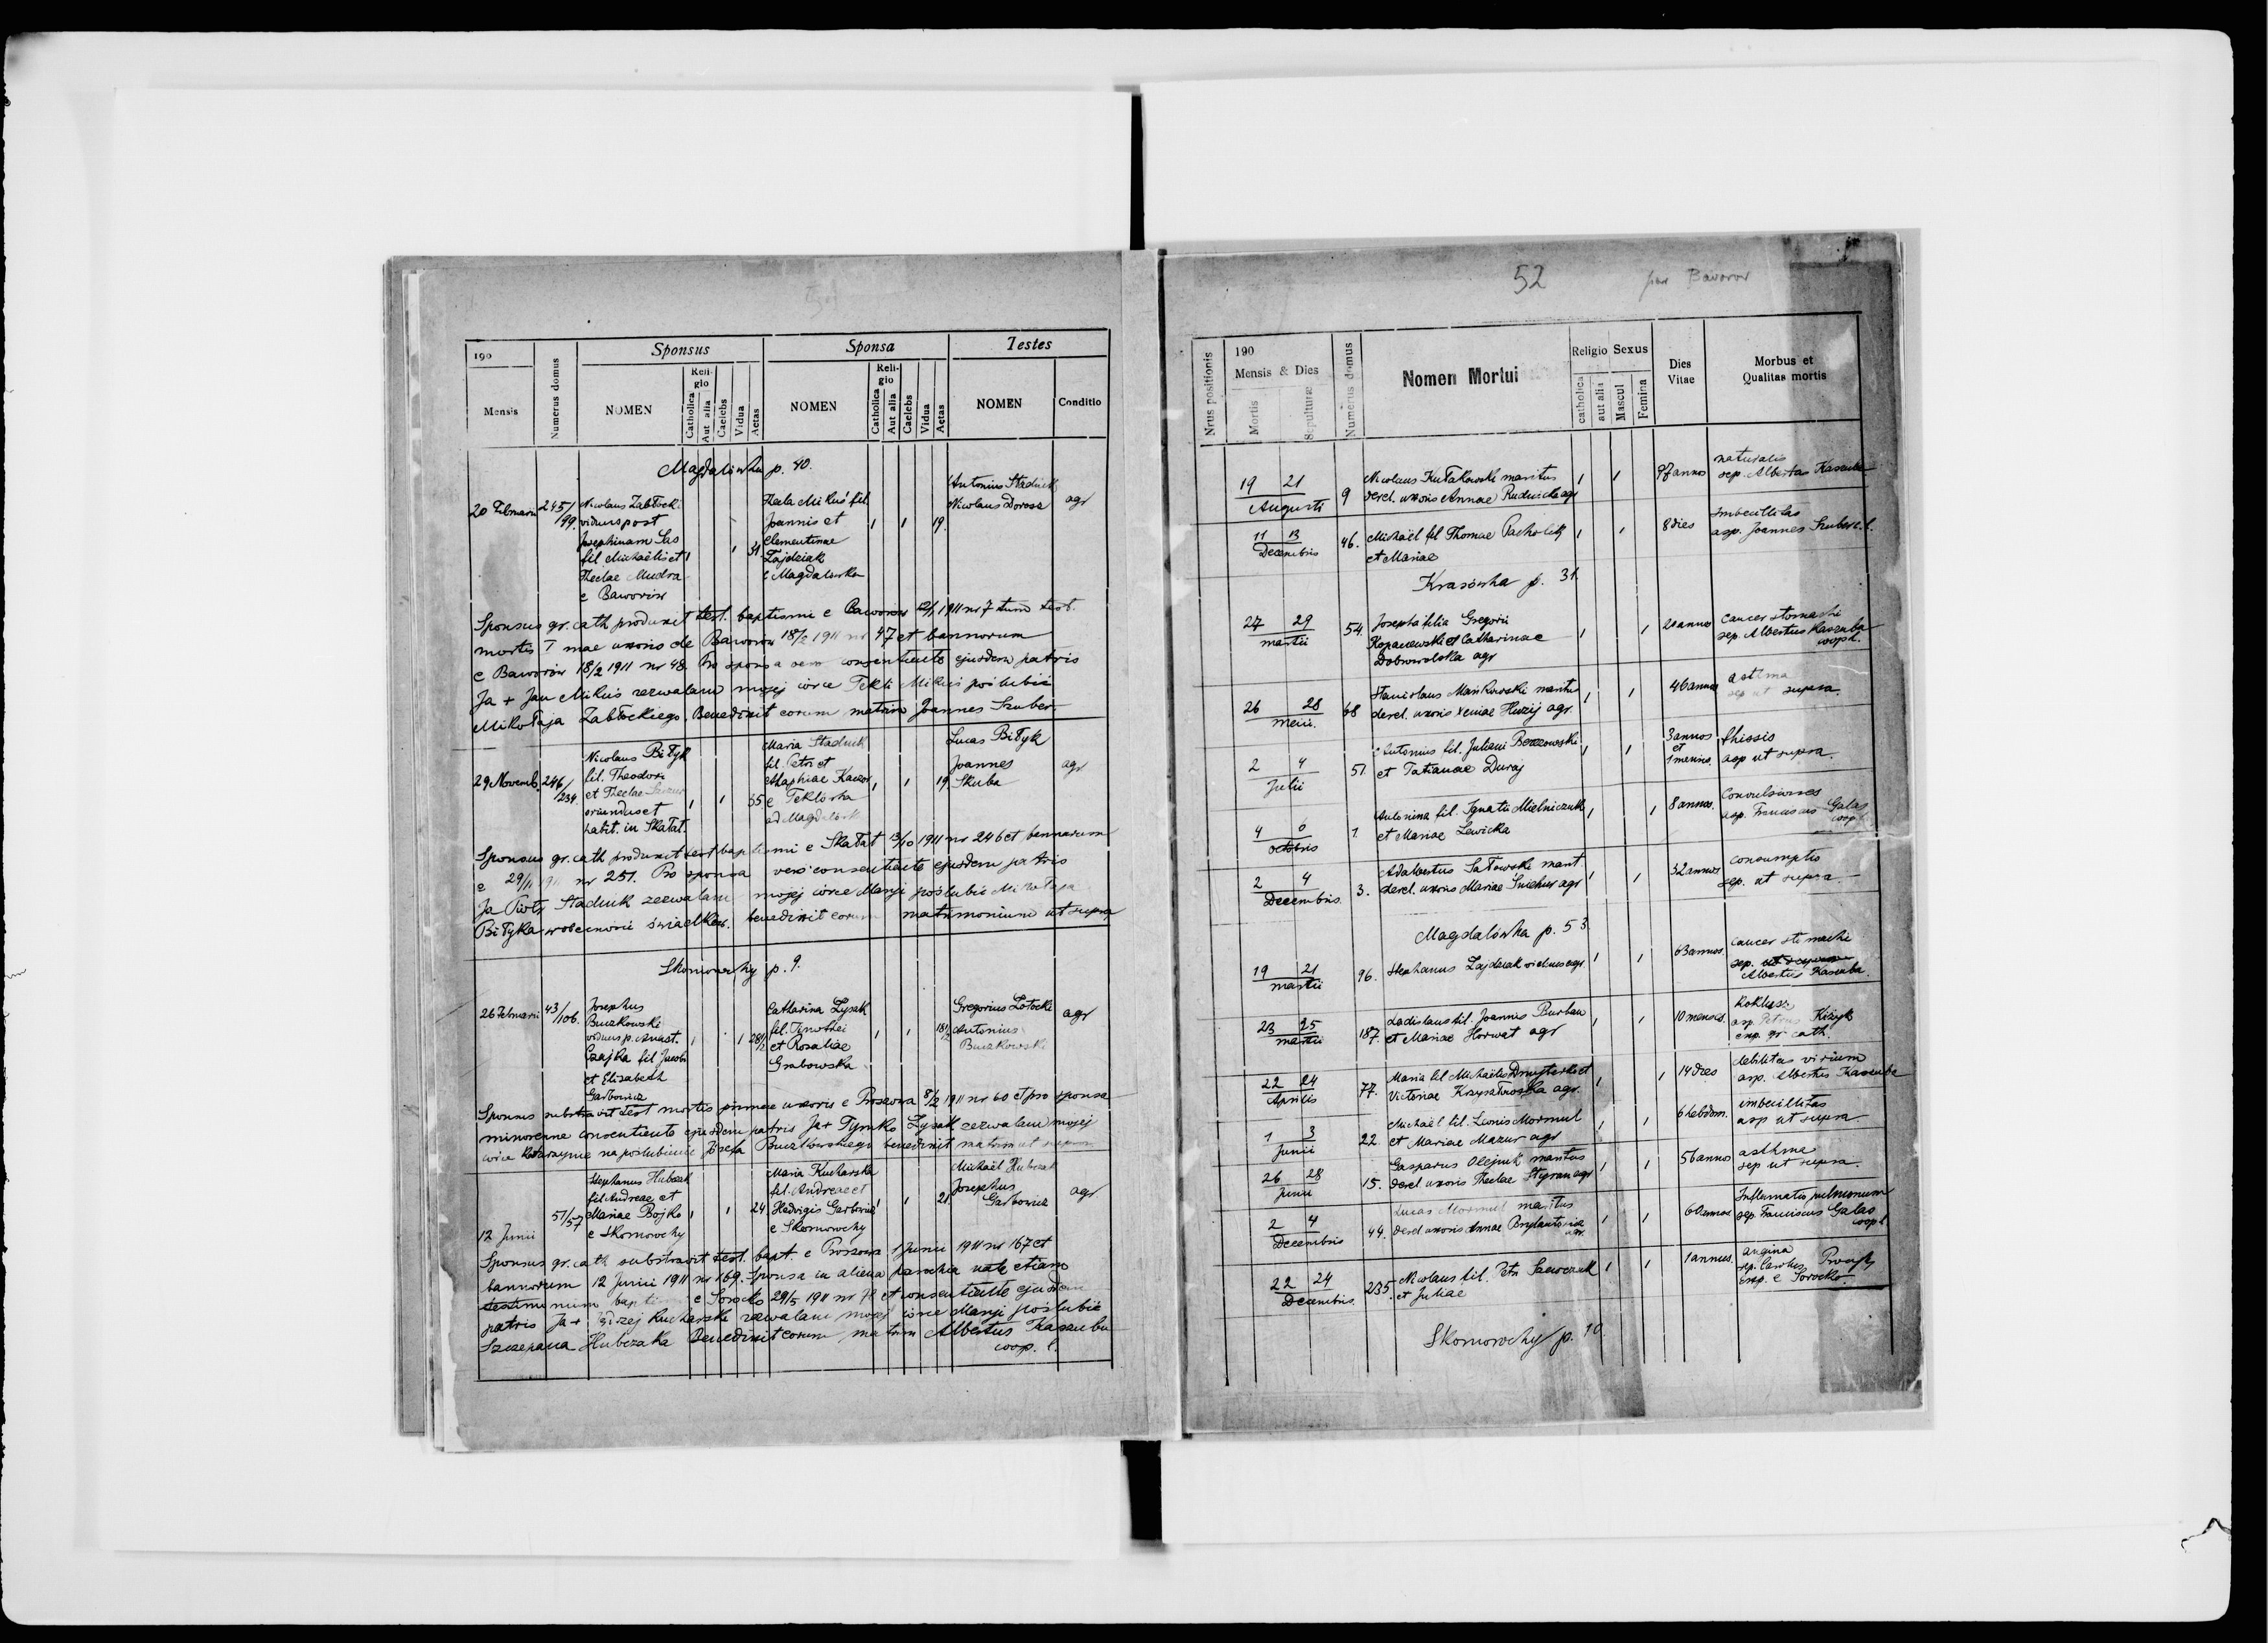 190
Sponsus
Sponsa
Testes
Mensis
Numerus domus
NOMEN
Religio
Catholica
Aut alia
Caelebs
Vidua
Aetas
NOMEN
Religio
Catholica
Aut alia
Caelebs
Vidua
Aetas
NOMEN
Conditio
Magdalówka p. 40.
20 Februarii
245/199
Nicolaus Zabłocki
viduus post
Josephinam Sas
fil Michaelis et
Theclae Mudra
e Baworów
1 31
Thecla Mikuś fil.
Joannis et
Clementinae
Zajdziak
e Magdalowka
1 1 19.
Antonius Stadnik
Nicolaus Dorosz
agr
Sponsus gr. cath produxit test. baptismi e Baworow 1911 nr 7 tum test.
mortis I mae uxoris de Baworow 18/2 1911 nr 47 et bannorum
e Baworow 18/2 1911 nr 48. Pro sponsa vero consentiente ejusdem patris
Ja + Jan Mikuś zezwalam mojej córce Tekli Mikuś poślubić
Mikołaja Zabłockiego. Benedixit eorum matrim Joannes Szuber.
29 Novemb.
246/234.
Nicolaus Biłyk
fil. Theodori
et Theclae
oriundus et
habit. in Skałat.
1 1 35
Maria Stadnik
fil. Petri et
Ahaphiae Kaczor
e Teklówka
ad Magdalówk
1 1 19.
Lucas Biłyk
Joannes
Skuba
agr
Sponsus gr. cath produxit test baptismi e Skałat 13/10 1911 nr 246 et bannorum
e 29/11 1911 nr 251. Pro sponsa vero consentiente ejusdem patris
Ja Piotr Stadnik zezwalam mojej córce Maryi poślubić Mikołaja
Biłyka w obecności świadków. benedixit eorum matrimonium ut supra
Skomorochy p. 9.
26 Februarii
43/106.
Josephus
Buczkowski
viduus p. Anast.
Czajka fil Jacobi
et Elisabeth
Garbowicz
1 1 28 1/2
Catharina Łysak
fil. Timothei
et Rosaliae
Grabowska
1 1 18 1/2
Gregorius Zotocki
Antonius
Buczkowski
agr
Sponsus substravit test mortis primae uxoris e Proszowa 8/2 1911 nr 60 et pro sponsa
minorenne consentiente ejusdem patris Ja + Tymko Łysak zezwalam mojej
córce Katarzynie na poślubienie Józefa Buczkowskiego benedixit matrim ut supra
12 Junii
51/57
Stephanus Hubczak
fil. Andreae et
Mariae Bojko
e Skomorochy
1 1 24
Maria Kucharska
fil. Andreae et
Hedvigis Garbowicz
e Skomorochy
1 1 21.
Michael Hubczak
Josephus
Garbowicz
agr
Sponsus gr. cath substravit test. bapt. e Proszowa 1 Junii 1911 nr 167 et
bannorum 12 Junii 1911 nr 169. Sponsa in aliena parochia nata etiam
testimonium baptismi e Sorocko 29/5 1911 nr et consentiente ejusdem
patris Ja + Andrzej Kucharski zezwalam mojej córce Maryi poślubić
Szczepana Hubczaka Benedixit eorum matrim Albertus Kaszuba
coop. l.
52
par Bavorov
Nrus positionis
190
Mensis & Dies
Mortis
Sepulturæ
Numerus domus
Nomen Mortui
Religio
catholica
aut alia
Sexus
Mascul
Femina
Dies
Vitae
Morbus et
Qualitas mortis
19 21
Augusti
9
Nicolaus Kułakowski maritus
derel. uxoris Annae Rudnicka agr
1 1
97 annos
naturalis
sep. Albertus Kaszuba
11 13
Decembris
46.
Michaël fil Thomae Pacholik
et Mariae
1 1
8 dies
Imbecillitas
asp. Joannes Szuber c. l.
Krasówka p. 31.
27 29
martii
54.
Josepha filia Gregorii
Kopaczewski et Catharinae
Dobrowolska agr
1 1
20 annos
cancer stomachi
sep. Albertus Kaszuba
cooph.
26 28
68
Stanislaus Mańkowski maritus
derel. uxoris Xeniae Huzij agr.
1 1
46 annos
asthma
sep ut supra.
2 4
Julii
51.
Antonius fil. Juliani Berezowski
et Tatianae Duraj
1 1
3 annos
et
1 mensis.
phissis
asp ut supra.
4 6
octobris
1.
Antonina fil. Ignatii Mielniczuk
et Mariae Lewicka
1 1
8 annos.
Convulsiones
asp. Franciscus Galas
cooph
2 4
Decembris.
3.
Adalbertus Sałowski marit.
derel. uxoris Mariae Sniehur agr
1 1
32 annos
consumptio
sep. ut supra.
Magdalówka p. 53.
19 21
martii
96.
Stephanus Zajdziak viduus agr.
1 1
63 annos.
cancer stomachi
sep. ut supra
Albertus Kaszuba.
23 25
martii
187.
Ladislaus fil. Joannis Burban
et Mariae Horwat agr
1 1
10 menses.
Koklusz
asp. Petrus Kiżyk
exp. gr. cath.
22 24
Aprilis
77.
Maria fil Michaelis Dmyterko et
Victoriae Krzyształowska agr.
1 1
14 dies
debilitas virium
asp. Albertus Kaszuba
1 3
Junii
22
Michaël fil. Leonis Mormul
et Mariae Mazur agr
1 1
6 hebdom.
imbecillitas
asp ut supra
26 28
Junii
15.
Gasparus Olejnik maritus
derel uxoris Theclae Styran agr
1 1
56 annos
asthma
sep ut supra.
2 4
Decembris
44.
Lucas Mormul maritus
derel uxoris Annae
agr.
1 1
60 annos
Inflamatio pulmonum
sep. Franciscus Galas
cooph
22 24
Decembris.
235.
Nicolaus fil. Petri Szewczuk
et Juliae
1 1
1 annus.
angina
sep. Carolus
exp. e Sorocko
Skomorochy p. 10.